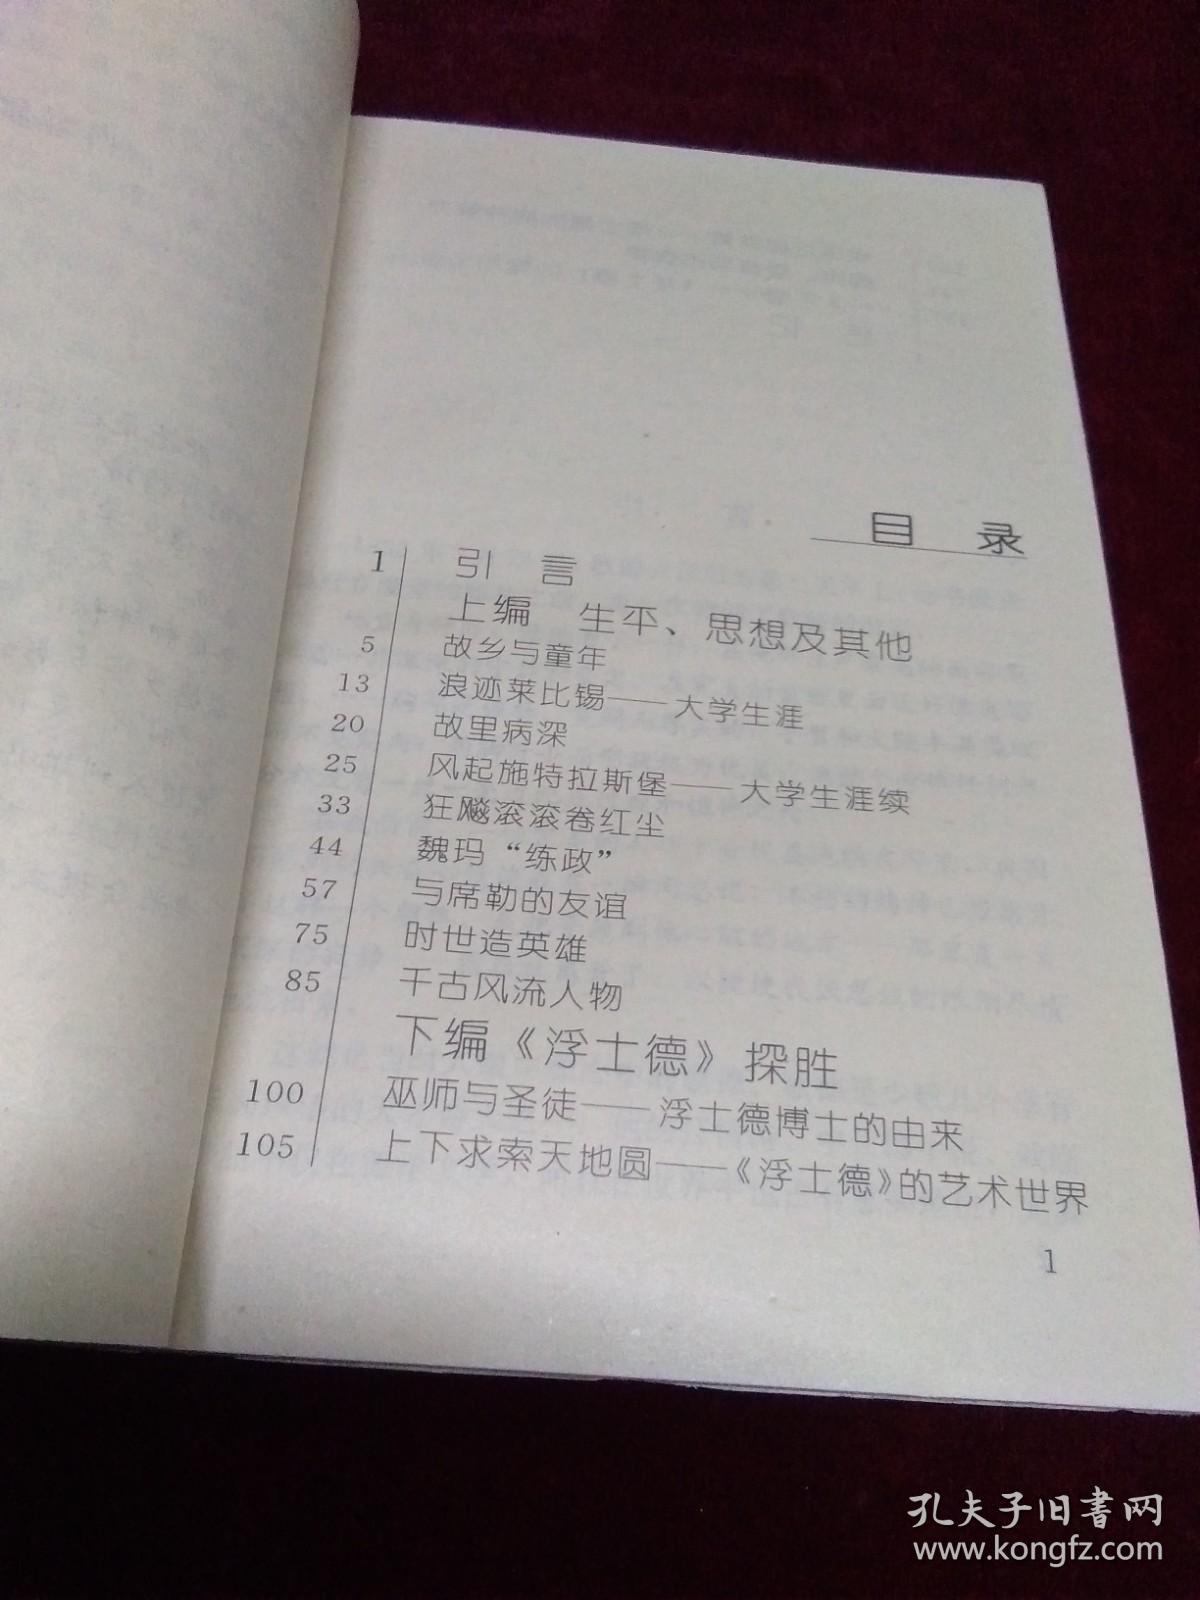 目 录
1 引 言
上编 生平、思想及其他
5 故乡与童年
13 浪迹莱比锡——大学生涯
20 故里病深
25 风起施特拉斯堡——大学生涯续
33 狂飚滚滚卷红尘
44 魏玛“练政”
57 与席勒的友谊
75 时世造英雄
85 千古风流人物
下编《浮士德》探胜
100 巫师与圣徒——浮士德博士的由来
105 上下求索天地圆——《浮士德》的艺术世界
1
孔夫子旧书网
www.kongfz.com